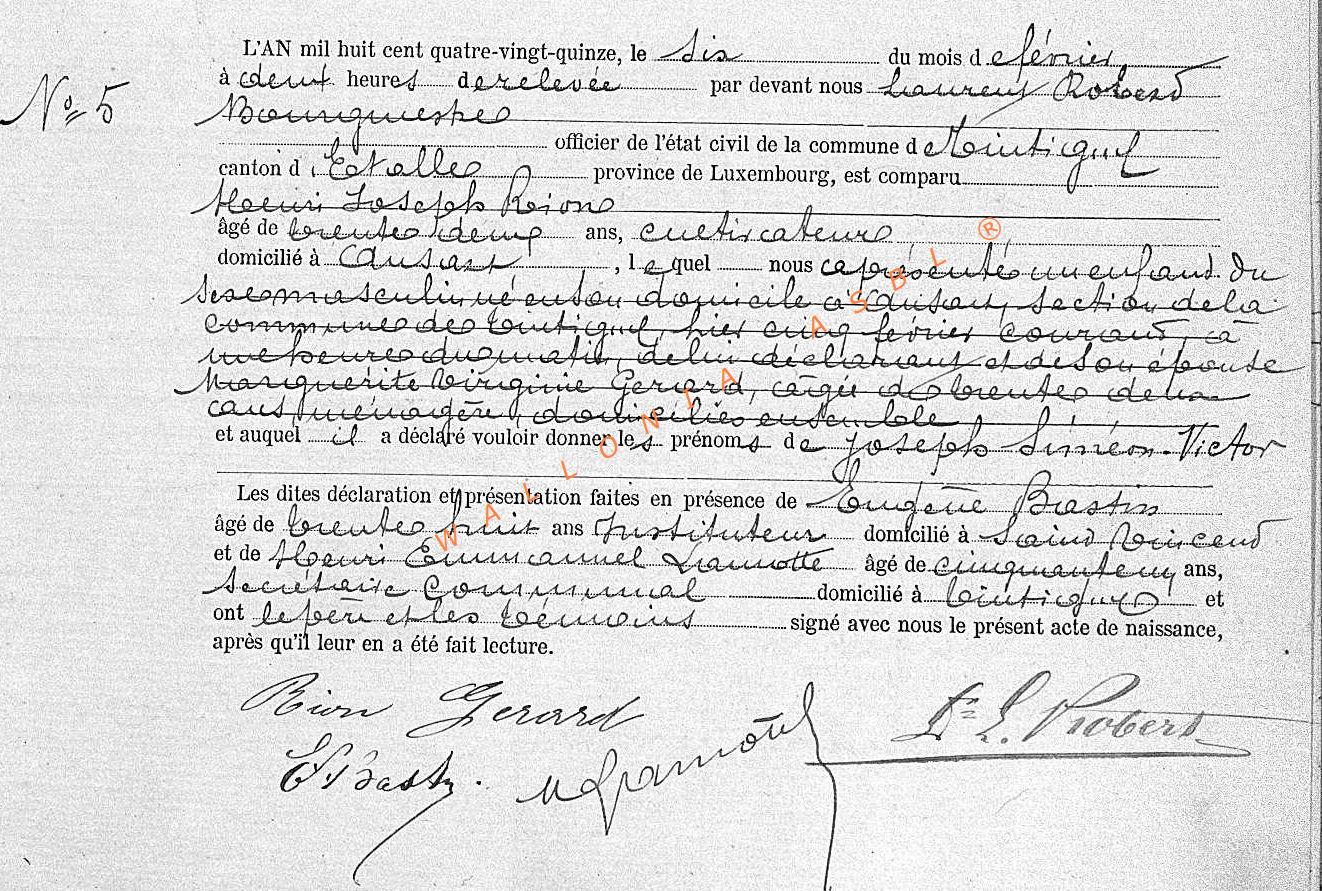 L'AN mil huit cent quatre-vingt-quinze, le six du mois de février
N° 5
à deux heures de relevée par devant nous Laurent Robert
Bourgmestre
officier de l'état civil de la commune de Tintigny
canton d'Etalle province de Luxembourg, est comparu
Henri Joseph Rion
âgé de trente deux ans, cultivateur
domicilié à Ansart, lequel nous a présenté un enfant du
sexe masculin, né en son domicile à Ansart, section de la
commune de Tintigny, hier cinq février courant, à
une heure du matin, de lui déclarant et de son épouse
Marguerite Virginie Gerard, âgée de trente deux
ans, ménagère, domiciliés ensemble
et auquel il a déclaré vouloir donner les prénoms de Joseph Siméon Victor
Les dites déclaration et présentation faites en présence de Eugène Bastin
âgé de trente huit ans Instituteur domicilié à Saint Vincent
et de Henri Emmanuel Lamotte âgé de cinquante un ans,
secrétaire communal domicilié à Tintigny et
ont le père et les témoins signé avec nous le présent acte de naissance,
après qu'il leur en a été fait lecture.
Rion Gerard
E Bastin
Lamotte
Dr L. Robert
WALLONIA ASBL ®